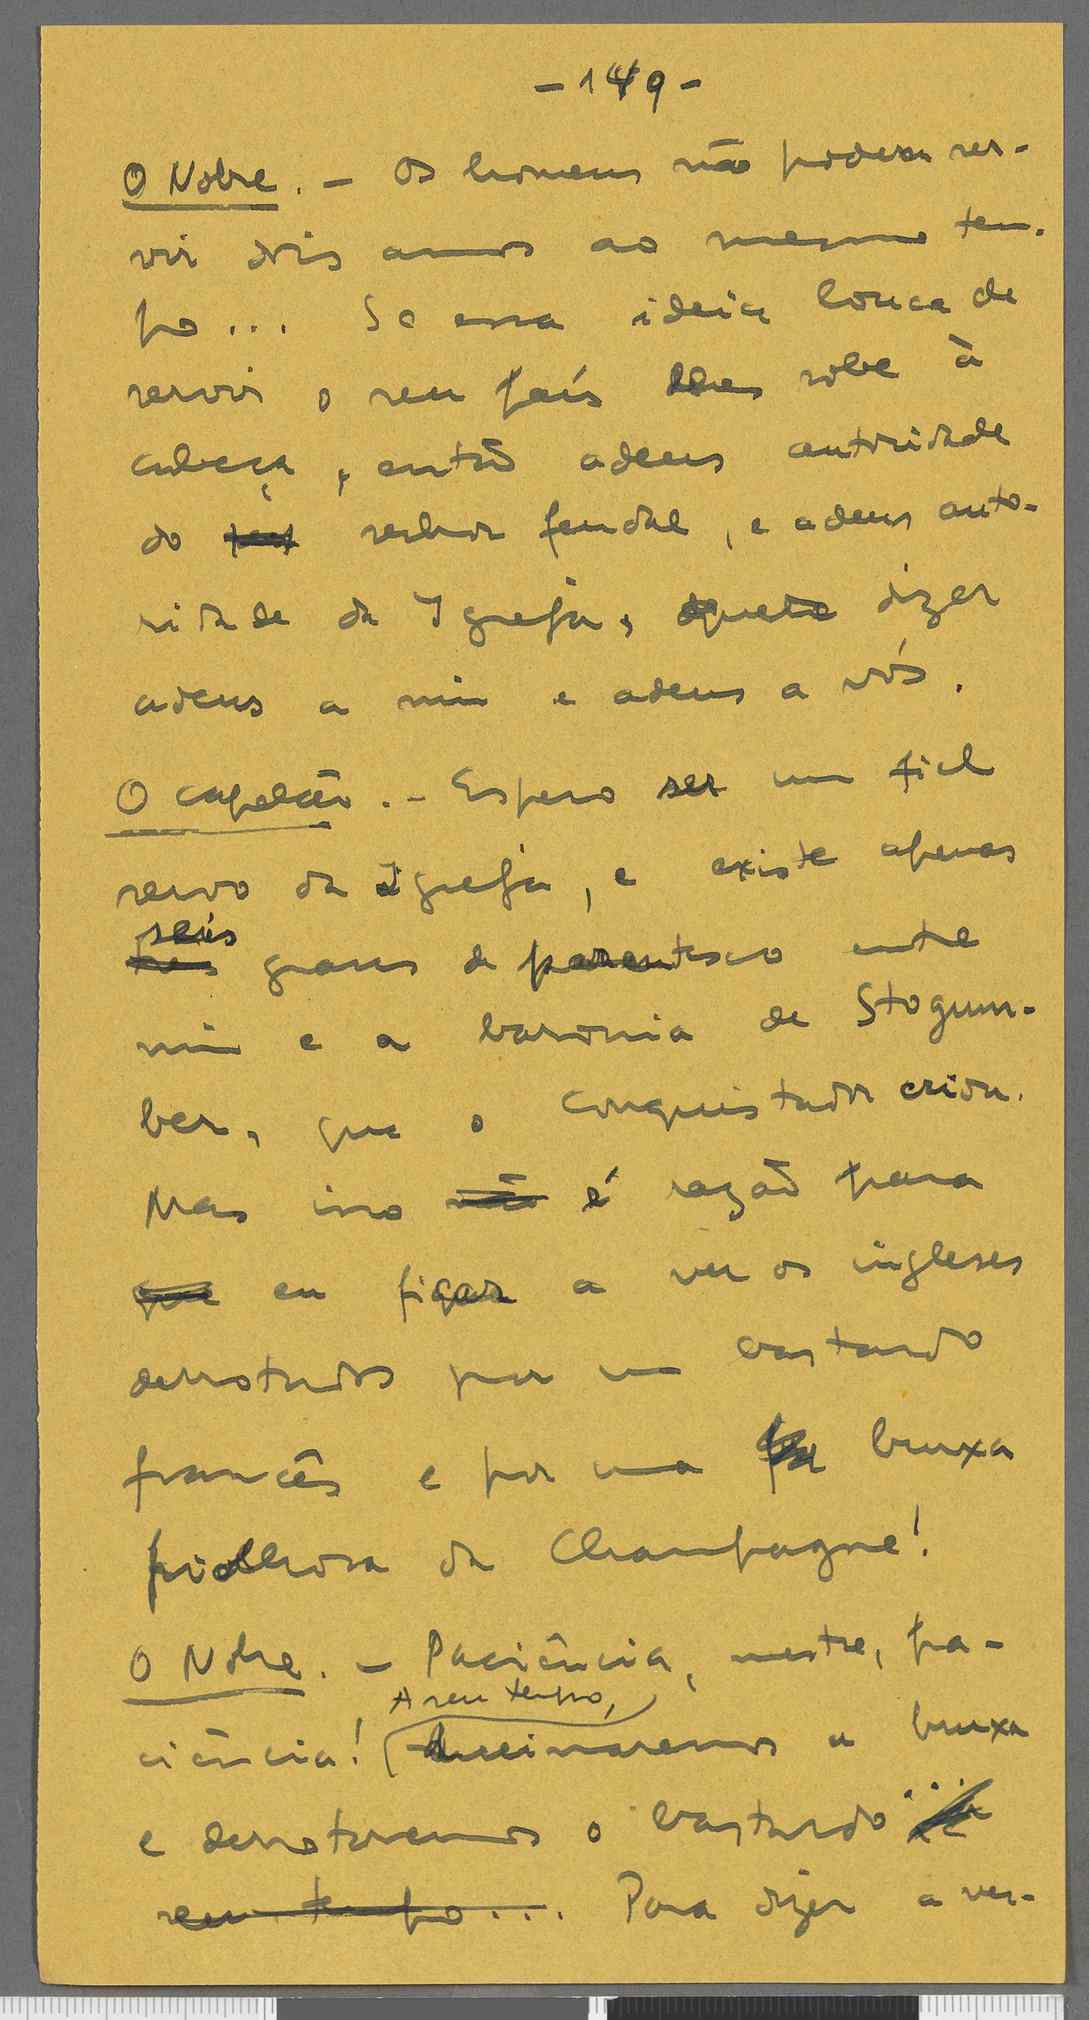 -149-
O Nobre. - Os homens não podem ser-
vir dois amos ao mesmo tem-
po... Se essa ideia louca de
servir o seu país lhes sobe à
cabeça, então adeus autoridade
do senhor feudal, e adeus auto-
ridade da Igreja, quere dizer
adeus a mim e adeus a vós.
O capelão. - Espero ser um fiel
servo da Igreja, e existe apenas
seis
três graus de parentesco entre
mim e a baronia de Stogum-
ber, que o Conquistador criou.
Mas isso não é razão para
que eu ficar a ver os ingleses
derrotados por um bastardo
francês e por uma bruxa
piolhosa da Champagne!
O Nobre. - Paciência, mestre, pa-
A seu tempo,
ciência! queimaremos a bruxa
e derrotaremos o bastardo...
seu tempo... Para dizer a ver-